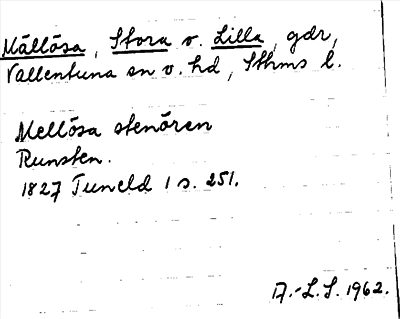 Mällösa, Stora o. Lilla, gdr,
Vallentuna sn o. hd, Sthms l.
Mellösa stenören
Runsten.
1827 Tuneld 1 s. 251.
D.-L.S. 1962.